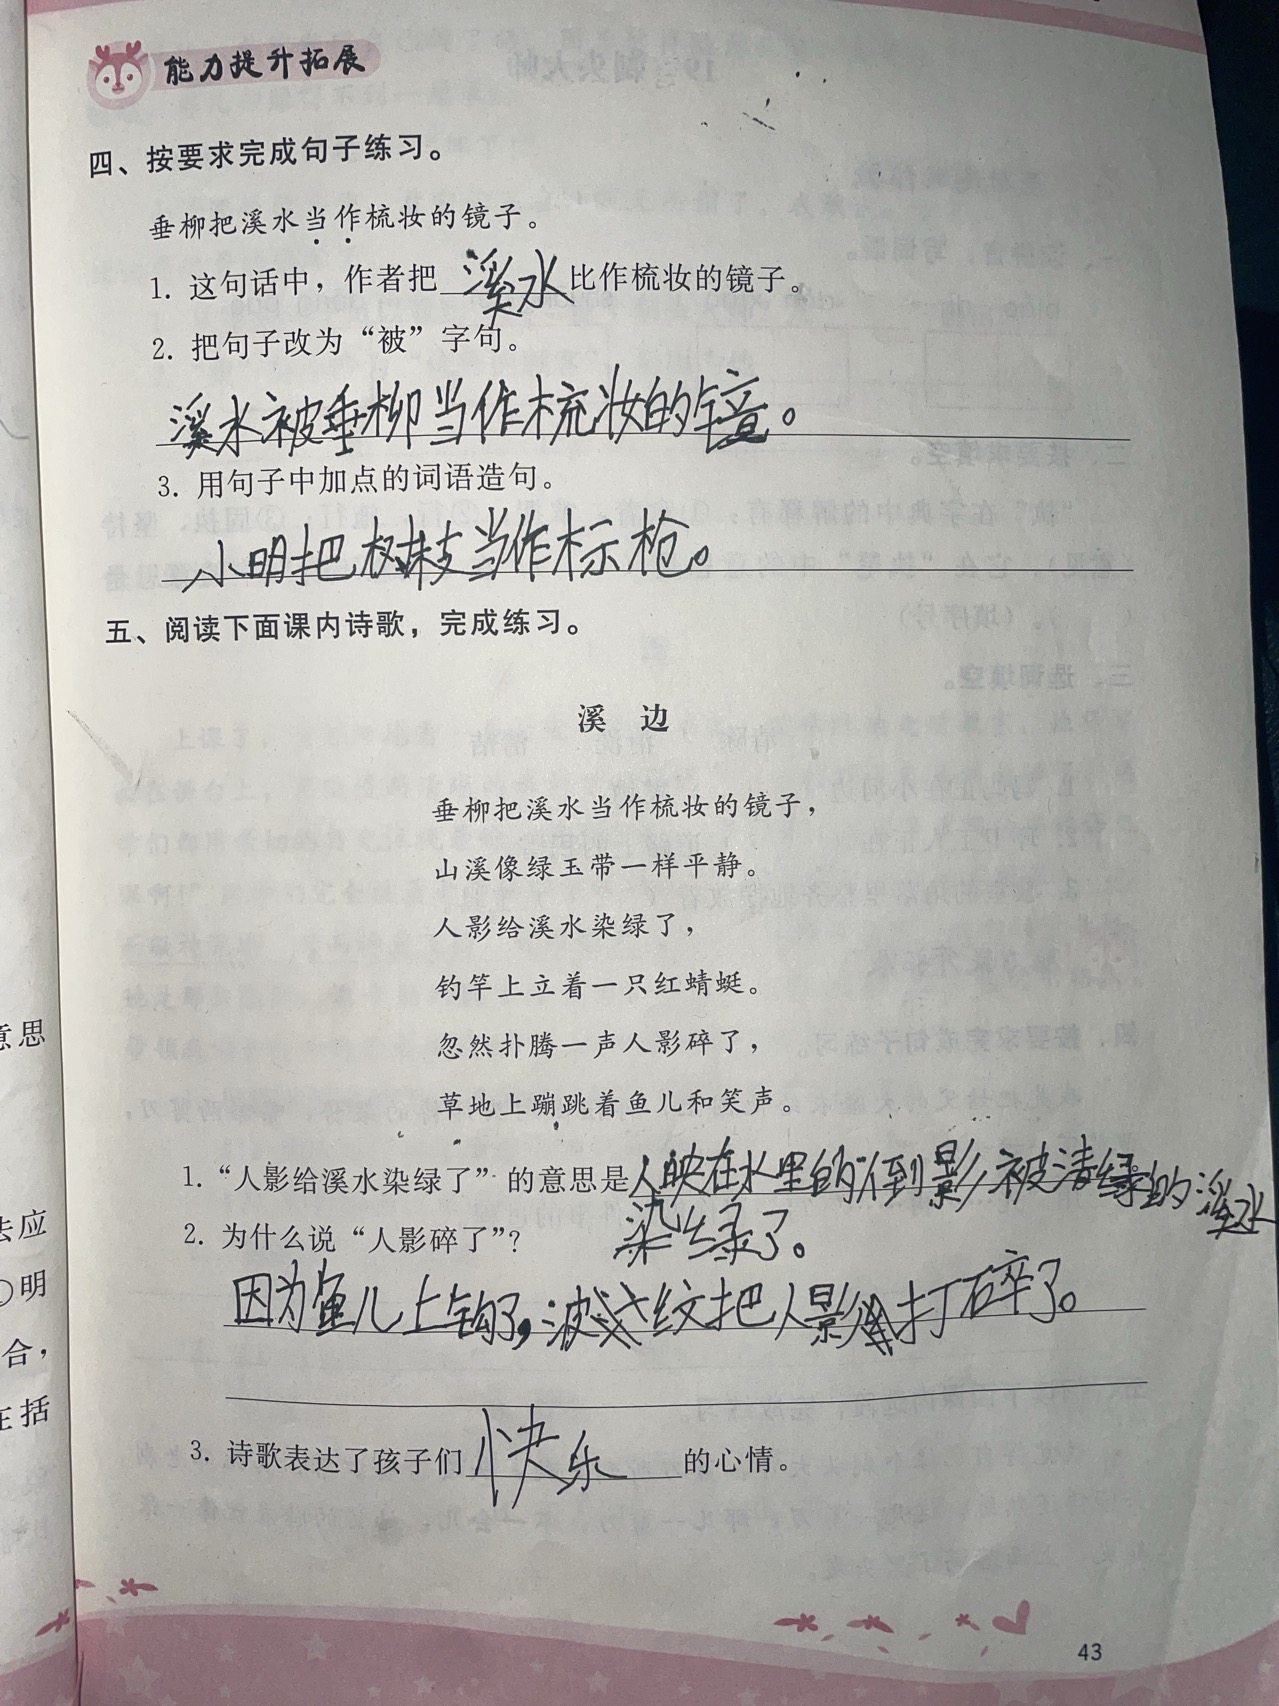 能力提升拓展
四、按要求完成句子练习。
垂柳把溪水当作梳妆的镜子。
1. 这句话中，作者把溪水比作梳妆的镜子。
2. 把句子改为“被”字句。
溪水被垂柳当作梳妆的镜。
3. 用句子中加点的词语造句。
小明把树枝当作标枪。
五、阅读下面课内诗歌，完成练习。
溪 边
垂柳把溪水当作梳妆的镜子，
山溪像绿玉带一样平静。
人影给溪水染绿了，
钓竿上立着一只红蜻蜓。
忽然扑腾一声人影碎了，
草地上蹦跳着鱼儿和笑声。
意思
1. “人影给溪水染绿了”的意思是人映在水里的倒影被清绿的溪水
染绿了。
法应
2. 为什么说“人影碎了”？
○明
因为鱼儿上钩了，波纹把人影打碎了。
合，
在括
3. 诗歌表达了孩子们快乐的心情。
43